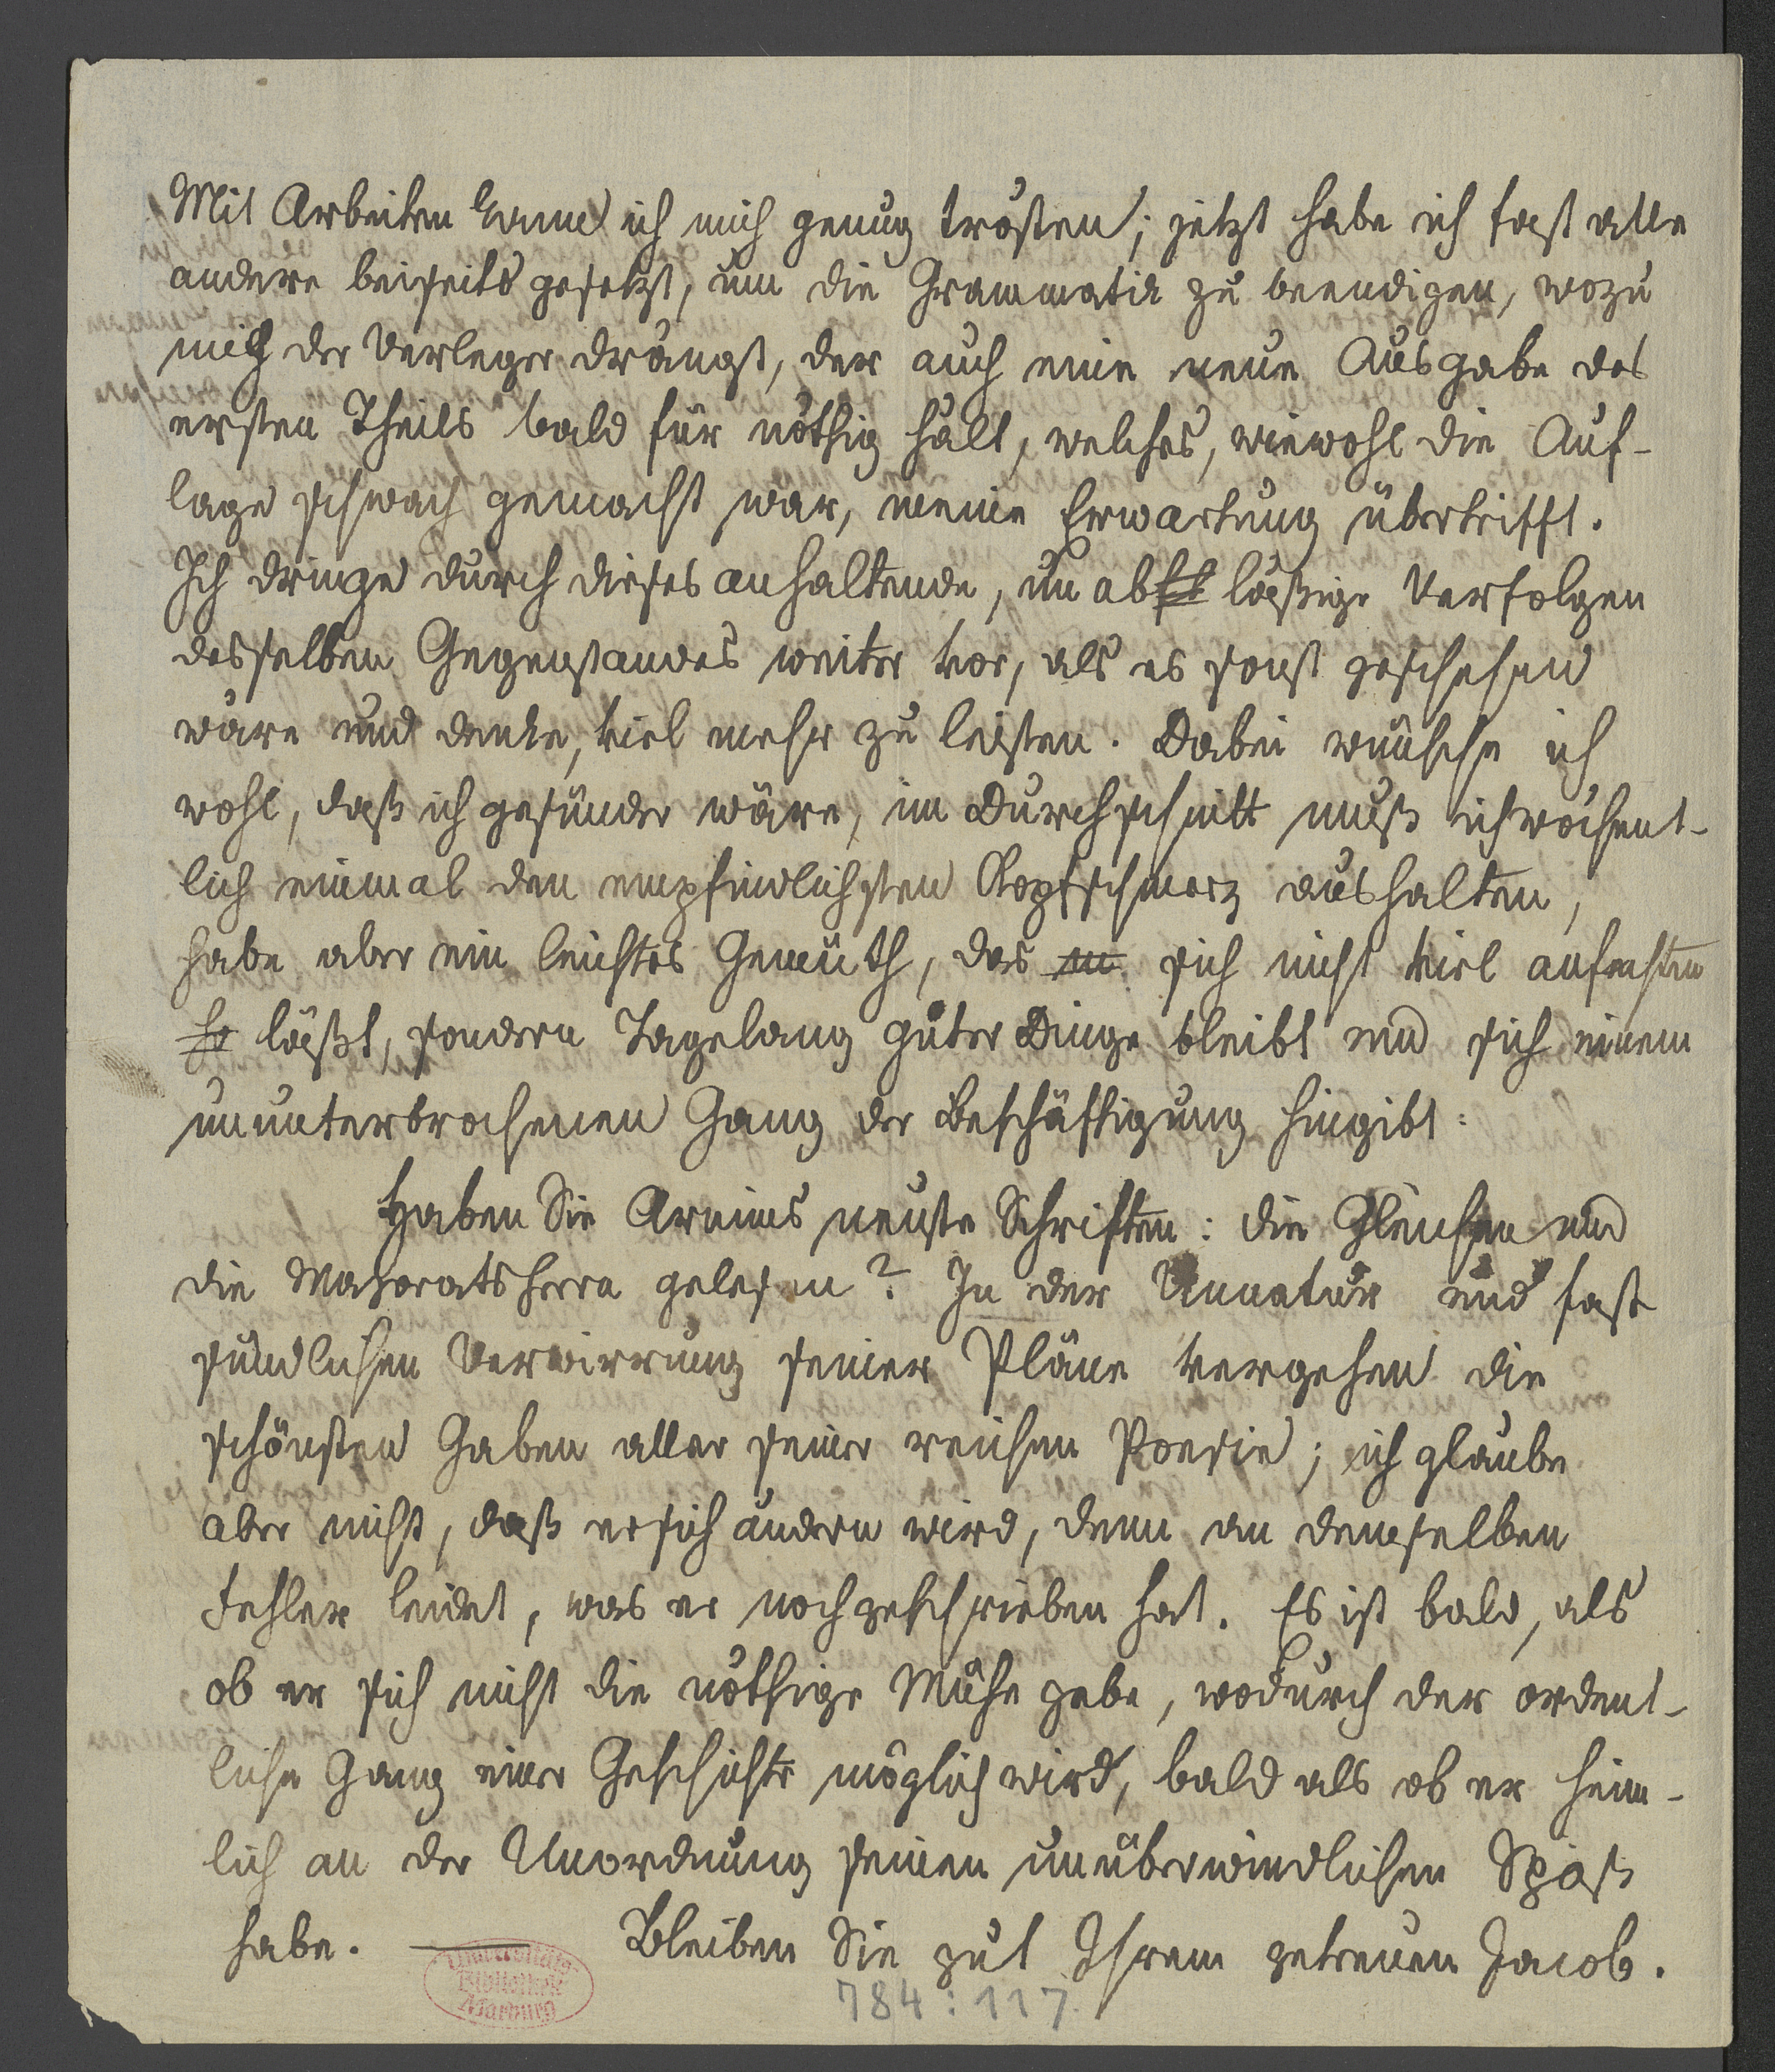 Mit Arbeiten kann ich mich genug trösten; jetzt habe ich fast alle
andere beiseits gesetzt, um die Grammatik zu beendigen, wozu
mich der Verleger drängt, der auch eine neue Ausgabe des
ersten Theils bald für nöthig hält, welches, wiewohl die Auf-
lage schwach gemacht war, meine Erwartung übertrifft.
Ich dringe durch dieses anhaltende, unabläßige Verfolgen
desselben Gegenstandes weiter vor, als es sonst geschehen
wäre und denke, viel mehr zu leisten. Dabei wünsche ich
wohl, daß ich gesünder wäre, im Durchschnitt muß ich wöchent-
lich einmal den empfindlichsten Kopfschmerz aushalten,
habe aber ein leichtes Gemüth, das sich nicht viel anfechten
läßt, sondern Tagelang guter Dinge bleibt und sich einem
ununterbrochenen Gang der Beschäftigung hingibt:
Haben Sie Arnims neuste Schriften: die Gleichen und
die Majoratsherrn gelesen? In der Unnatur und fast
sündlichen Verwirrung seiner Pläne vergehen die
schönsten Gaben aller seiner reichen Poesie; ich glaube
aber nicht, daß er sich ändern wird, denn an demselben
Fehler leidet, was er noch geschrieben hat. Es ist bald, als
ob er sich nicht die nöthige Mühe gebe, wodurch der ordent-
liche Gang einer Geschichte möglich wird, bald als ob er heim-
lich an der Unordnung seinen unüberwindlichen Spaß
habe. — Bleiben Sie gut Ihrem getreuen Jacob.
Universitäts-
Bibliothek
Marburg
784:117.